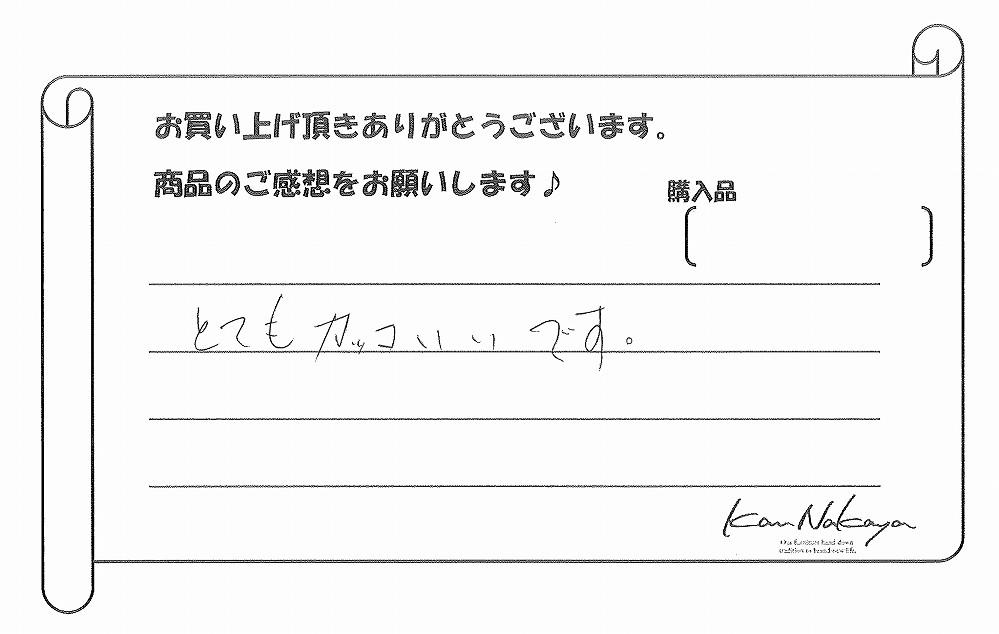 お買い上げ頂きありがとうございます。
商品のご感想をお願いします♪
購入品
とてもカッコいいです。
Kan Nakaya
Our furniture hand down
tradition to brand-new life.